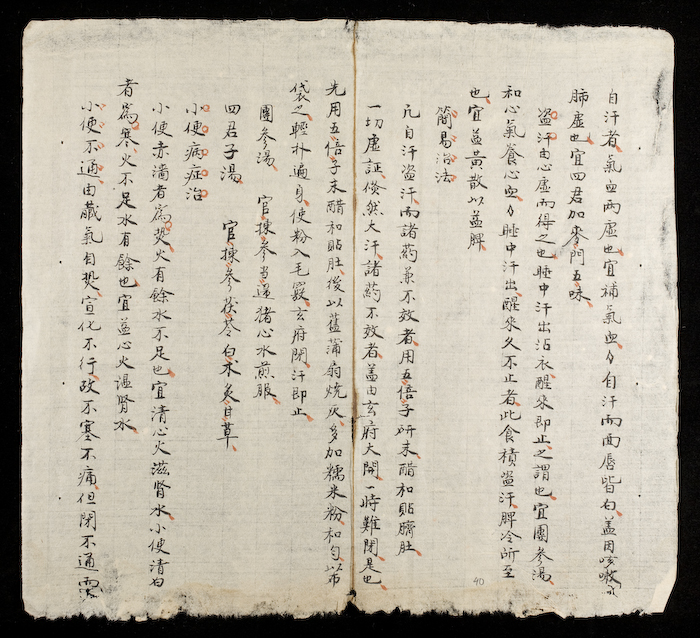 自汗者、氣血兩虛也、宜補氣血々自汗而面唇皆白、蓋因咳嗽
肺虛也、宜四君加麥門五味、
盜汗由心虛而得之也、睡中汗出沾衣醒來即止之謂也、宜團參湯、
和心氣養心血々睡中汗出、醒來久不止者、此食積盜汗、脾冷所至
也、宜益黃散以益脾、
簡易治法
凡自汗盜汗而諸药兼不效者、用五倍子研末醋和貼臍肚、
一切虛証、倏然大汗諸药不效者、蓋由玄府大開、一時難閉、是也、
先用五倍子末醋和貼肚、後以舊蒲扇燒灰、多加糯米粉和勻以布
袋之輕朴遍身、使粉入毛竅玄府閉汗即止、
團參湯、 官揀參當歸猪心水煎服、
四君子湯、 官揀參茯苓白术炙甘草、
小便病症治
小便赤濇者、為熱、火有餘水不足也、宜清心火滋腎水、小便清白
者、為寒、火不足水有餘也、宜益心火溫腎水、
小便不通、由臟氣自熱、宣化不行、故不塞不痛但閉不通
40